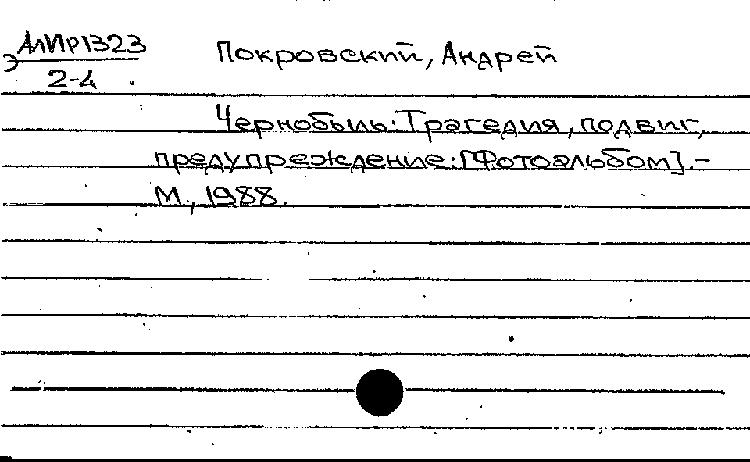 АлИр1323 Покровский, Андрей
Э 2-4
Чернобыль: Трагедия, подвиг,
предупреждение: [Фотоальбом]. -
М., 1988.